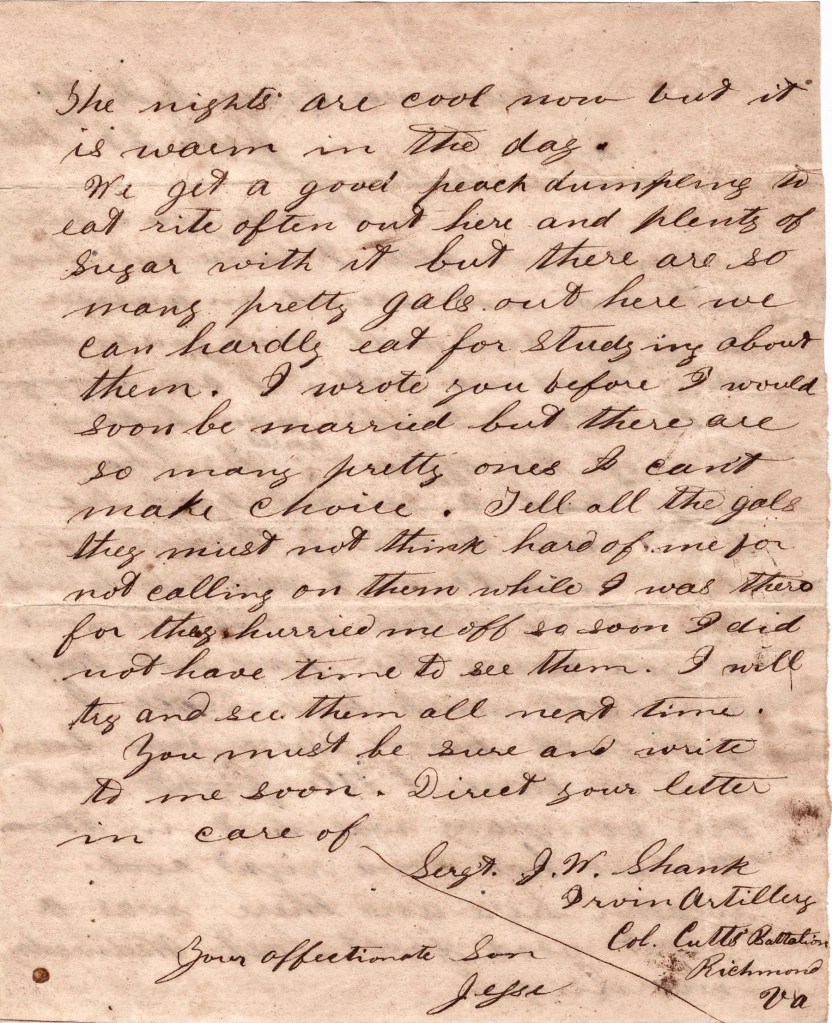 The nights are cool now but it
is warm in the day.
We get a good peach dumpling to
eat rite often out here and plenty of
sugar with it but there are so
many pretty gals out here we
can hardly eat for studying about
them. I wrote you before I would
soon be married but there are
so many pretty ones I can't
make choice. Tell all the gals
they must not think hard of me for
not calling on them while I was there
for they hurried me off so soon I did
not have time to see them. I will
try and see them all next time.
You must be sure and write
to me soon. Direct your letter
in care of
Sergt. J. W. Shank
Irvin Artillery
Col. Cutts Battalion
Richmond
Va
Your affectionate Son
Jesse